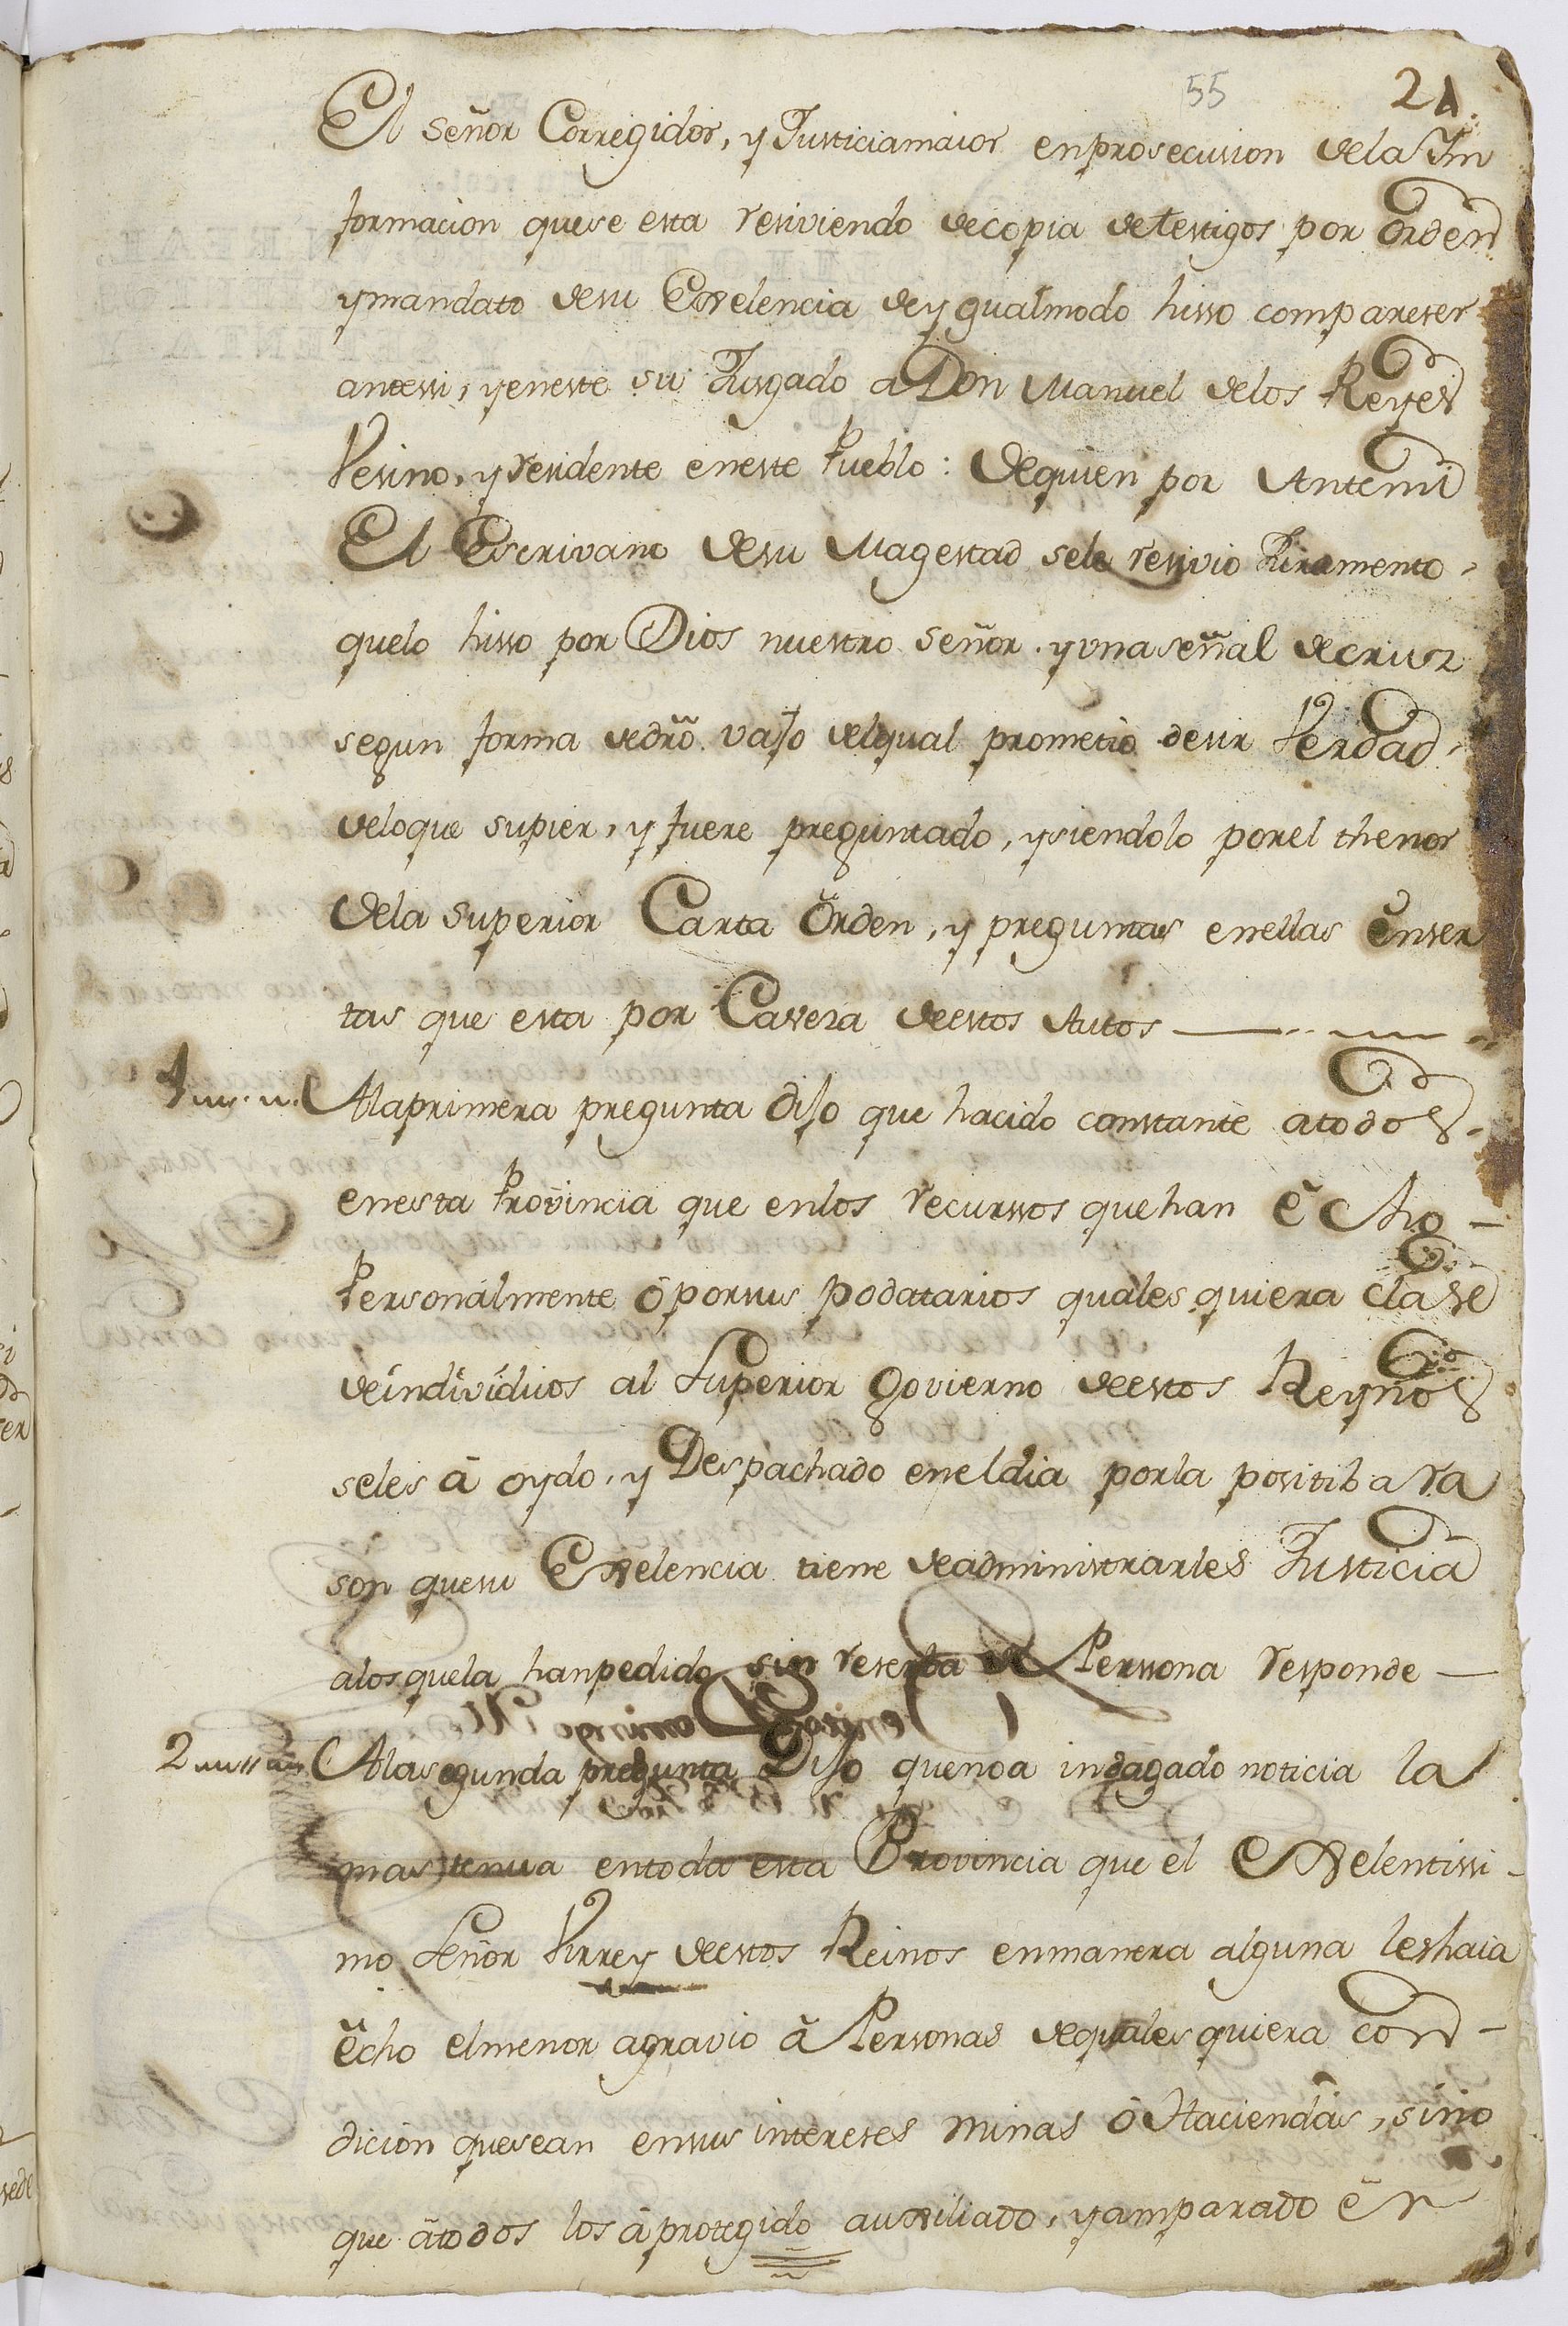 55 21.
El señor Corregidor, y Justiciamaior enprosecusion dela Jn
formacion quese esta resiviendo decopia detestigos por orden
ymandato desu Exelencia deygualmodo hisso compareser
antessi, yeneste su Jusgado a Don Manuel delos Reyes
Vesino, y residente eneste Pueblo: dequien por Antemi
El Escrivano desu Magestad sele resivio Juramento,
quelo hisso por Dios nuestro señor. yuna señal decrus
segun forma dedrõ. vajo delqual prometio desir Verdad,
deloque supier, y fuere preguntado, ysiendolo porel thenor
dela superior Carta Orden, y preguntas enellas enser
tas que esta por Cavesa deestos Autos
1 Alaprimera pregunta dijo que hacido constante atodos
enesta Provincia que enlos recurssos quehan echo
Personalmente ó porsus podatarios quales quiera clase
deindividuos al Superior Govierno deestos Reynos
seles á oydo, y Despachado eneldia porla positiba ra
son quesu Exelencia tiene deadministrarles Justicia
alosquela hanpedido sin reserba de Perssona responde
2 Alasegunda pregunta Dijo quenoa indagado noticia la
mas tenua entoda esta Provincia que el Exelentissi-
mo Señor Virrey deestos Reinos enmanera alguna leshaia
echo elmenor agravio á Personas dequales quiera con-
dicion quesean ensus intereses minas ó Haciendas, sino
que átodos los á protegido auxiliado, yamparado en